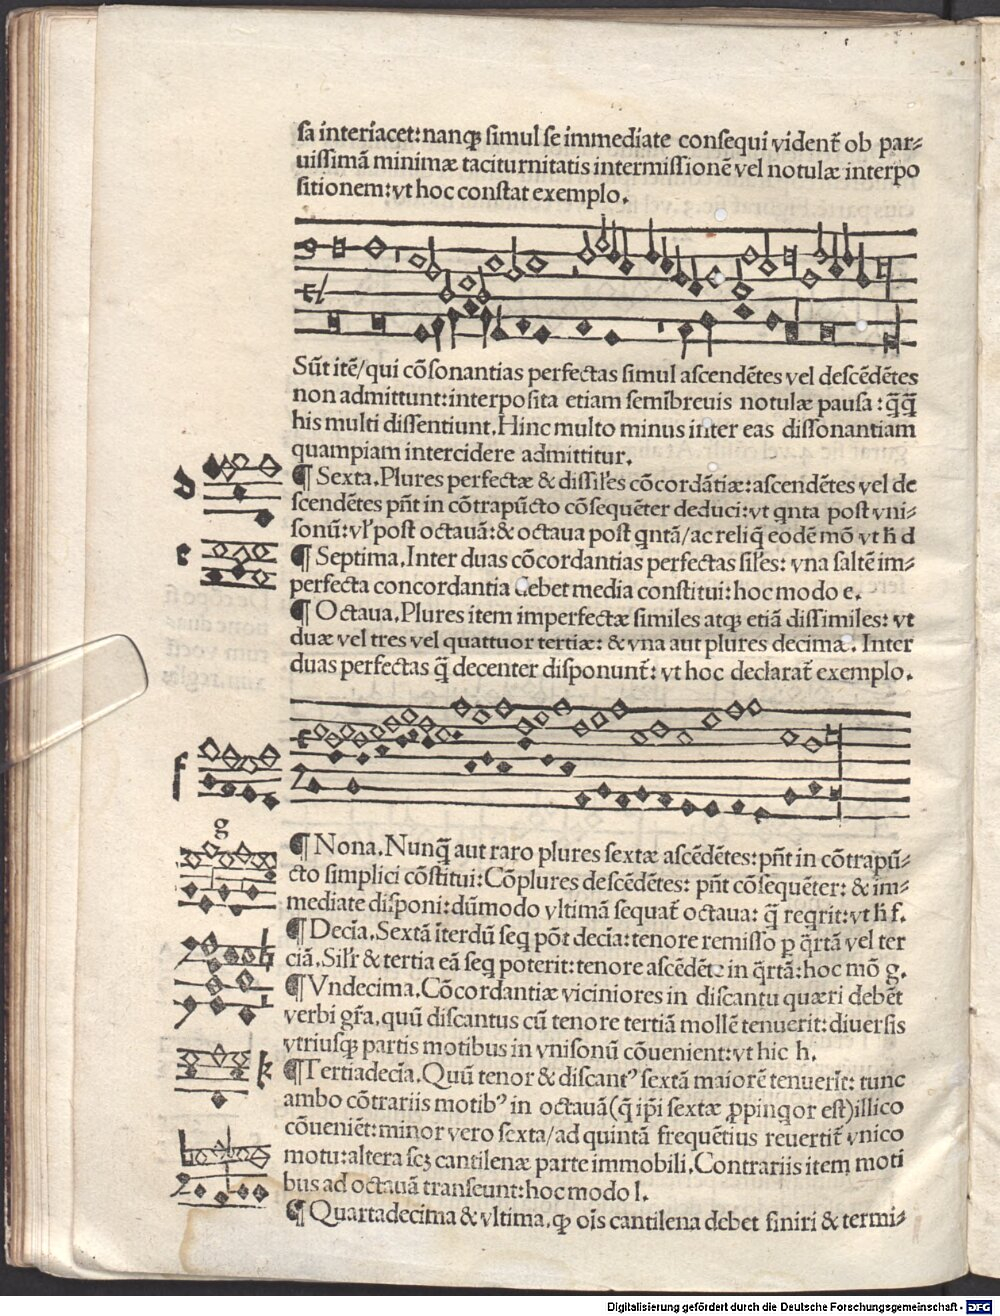 sa interiacet: nanqꝫ simul se immediate consequi vident̃ ob par⸗
uissimã minimæ taciturnitatis intermissionẽ vel notulæ interpo
sitionem: vt hoc constat exemplo.
Sũt itẽ/qui cõsonantias perfectas simul ascendẽtes vel descẽdẽtes
non admittunt: interposita etiam semibreuis notulæ pausa: q̃q̃
his multi dissentiunt. Hinc multo minus inter eas dissonantiam
quampiam intercidere admittitur.
d
¶ Sexta. Plures perfectæ & dissiles cõcordãtiæ: ascendẽtes vel de
scendẽtes pñt in cõtrapũcto cõsequẽter deduci: vt qnta post vni⸗
sonũ: vl̃ post octauã: & octaua post qntã/ac reliq̃ eodẽ mõ vt h̃ d
e
¶ Septima. Inter duas cõcordantias perfectas siles: vna saltẽ im⸗
perfecta concordantia debet media constitui: hoc modo e.
¶ Octaua. Plures item imperfectæ similes atqꝫ etiã dissimiles: vt
duæ vel tres vel quattuor tertiæ: & vna aut plures decimæ. Inter
duas perfectas q̃ decenter disponunt̃: vt hoc declarat̃ exemplo.
f
g
¶ Nona. Nunq̃ aut raro plures sextæ ascẽdẽtes: pñt in cõtrapũ⸗
cto simplici cõstitui: Cõplures descẽdẽtes: pñt cõsequẽter: & im⸗
mediate disponi: dũmodo vltimã sequat̃ octaua: q̃ reqrit: vt h̃ f.
¶ Decĩa. Sextã ĩterdũ seq põt decĩa: tenore remisso p q̃rtã vel ter
ciã. Sil̃r & tertia eã seq poterit: tenore ascẽdẽte in q̃rtã: hoc mõ g.
h
¶ Vndecima. Cõcordantiæ viciniores in discantu quæri debẽt
verbi gr̃a, quũ discantus cũ tenore tertiã mollẽ tenuerit: diuersis
vtriusqꝫ partis motibus in vnisonũ cõuenient: vt hic h.
k
¶ Tertiadecĩa. Quũ tenor & discantꝰ sextã maiorẽ tenuerĩt: tunc
ambo cõtrariis motibꝰ in octauã (q̃ ip̃i sextæ ꝓpinqor est) illico
cõueniẽt: minor vero sexta/ad quintã frequẽtius reuertit̃ vnico
motu: altera scꝫ cantilenæ parte immobili. Contrariis item moti
bus ad octauã transeunt: hoc modo l.
l
¶ Quartadecima & vltima, qꝫ oĩs cantilena debet finiri & termi⸗
Digitalisierung gefördert durch die Deutsche Forschungsgemeinschaft - DFG